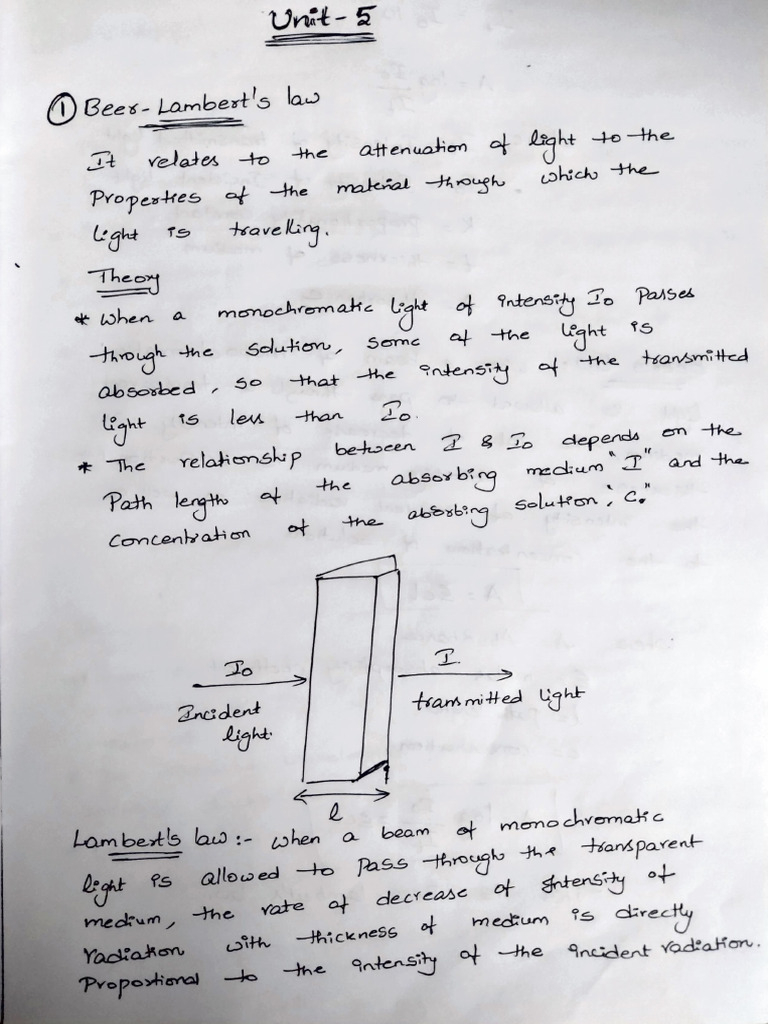 Unit-5
① Beer-Lambert's law
It relates to the attenuation of light to the
Properties of the material through which the
light is travelling.
Theory
* When a monochromatic light of intensity I0 Passes
through the solution, some of the light is
absorbed, so that the intensity of the transmitted
light is less than I0.
* The relationship between I & I0 depends on the
Path length of the absorbing medium "I" and the
Concentration of the absorbing solution, "C."
I0
I.
Incident
light.
transmitted light
l
Lambert's law :- When a beam of monochromatic
light is allowed to pass through the transparent
medium, the rate of decrease of intensity of
radiation with thickness of medium is directly
Proportional to the intensity of the incident radiation.